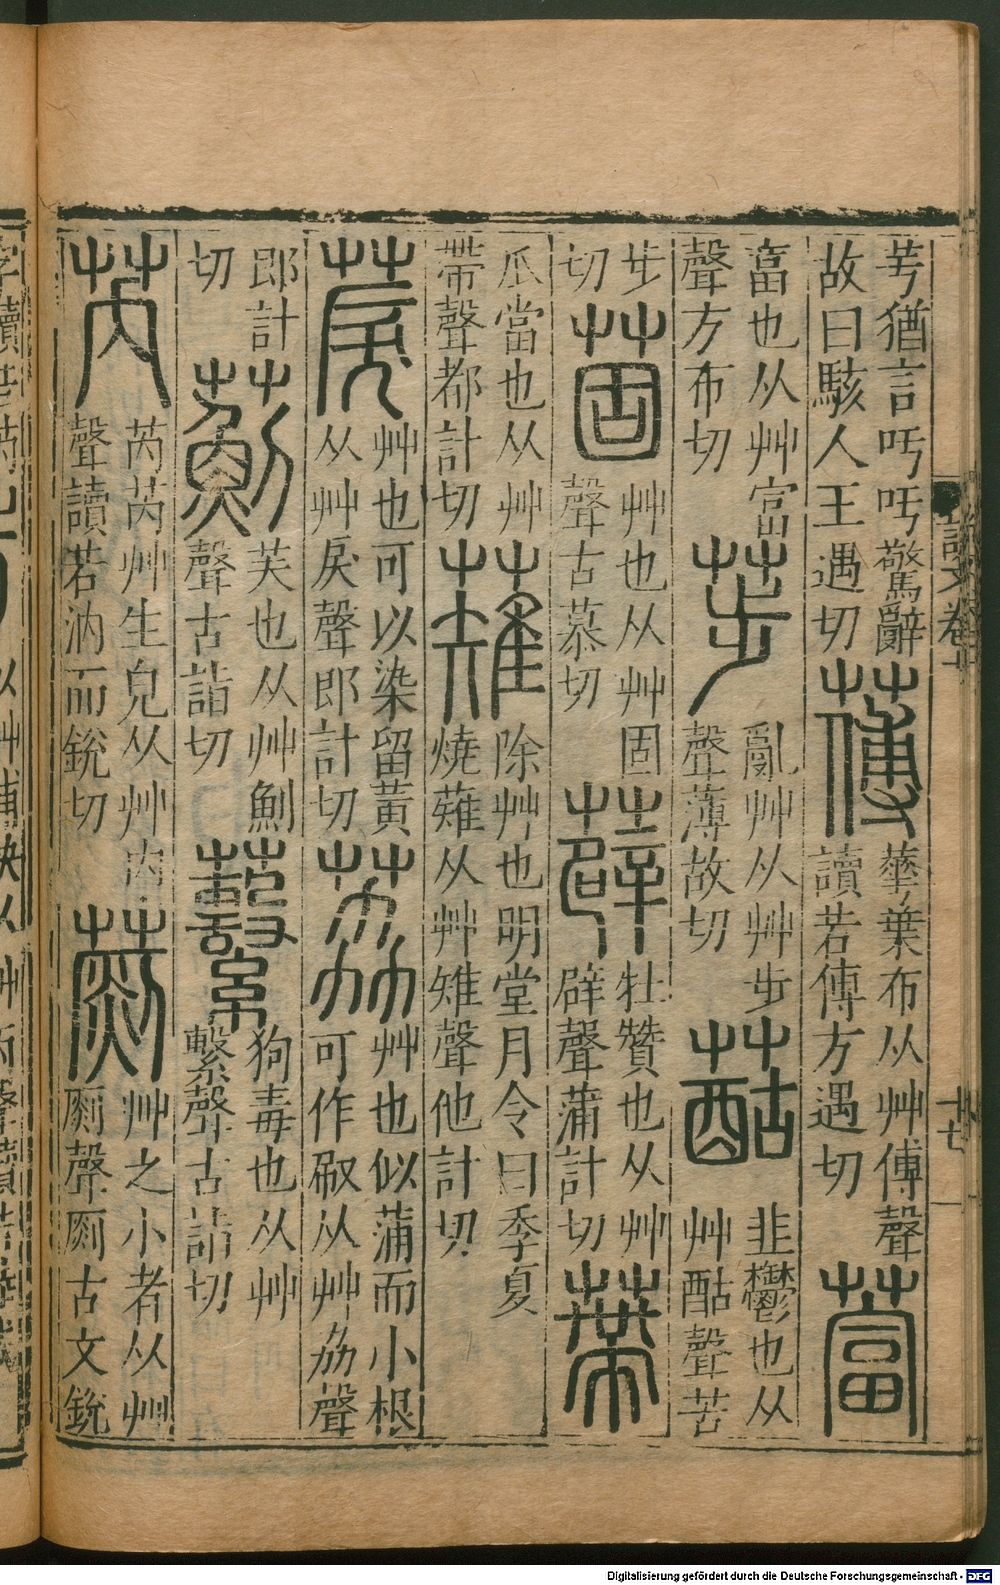 芌猶言吁吁驚辭
故曰駭人王遇切
華葉布从艸傅聲
讀若傅方遇切
䔰
葍也从艸富
聲方布切
荹
亂艸从艸步
聲薄故切
韭鬱也从
艸酤聲苦
步
切
艸也从艸固
聲古慕切
薜
牡贊也从艸
辟聲蒲計切
蔕
瓜當也从艸
帶聲都計切
薙
除艸也明堂月令曰季夏
燒薙从艸雉聲他計切
䓞
艸也可以染留黃
从艸戾聲郎計切
荔
艸也似蒲而小根
可作㕞从艸劦聲
郎計
切
薊
芺也从艸魝
聲古詣切
蘻
狗毒也从艸
繫聲古詣切
芮
芮芮艸生皃从艸內
聲讀若汭而銳切
艸之小者从艸
𠛬聲𠛬古文銳
說文卷十
廿七
Digitalisierung gefördert durch die Deutsche Forschungsgemeinschaft - DFG